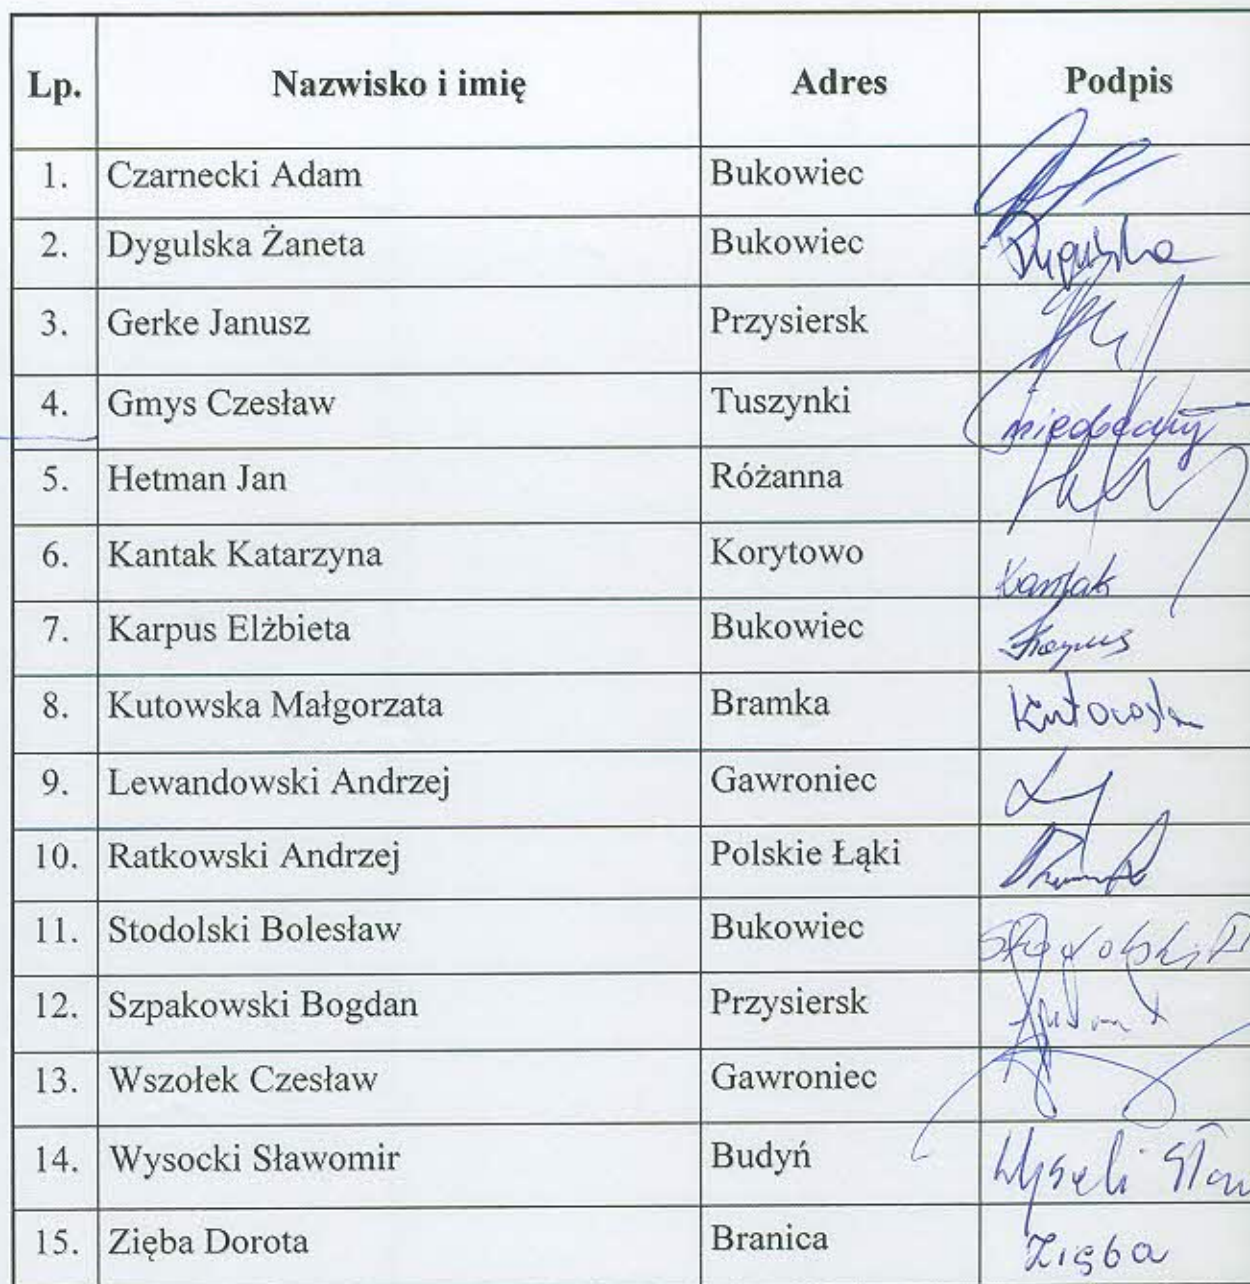 Lp. Nazwisko i imię Adres Podpis
1. Czarnecki Adam Bukowiec
2. Dygulska Żaneta Bukowiec Dygulska
3. Gerke Janusz Przysiersk
4. Gmys Czesław Tuszynki nieobecny
5. Hetman Jan Różanna
6. Kantak Katarzyna Korytowo Kantak
7. Karpus Elżbieta Bukowiec Karpus
8. Kutowska Małgorzata Bramka Kutowska
9. Lewandowski Andrzej Gawroniec
10. Ratkowski Andrzej Polskie Łąki
11. Stodolski Bolesław Bukowiec Stodolski
12. Szpakowski Bogdan Przysiersk
13. Wszołek Czesław Gawroniec
14. Wysocki Sławomir Budyń
15. Zięba Dorota Branica Zięba